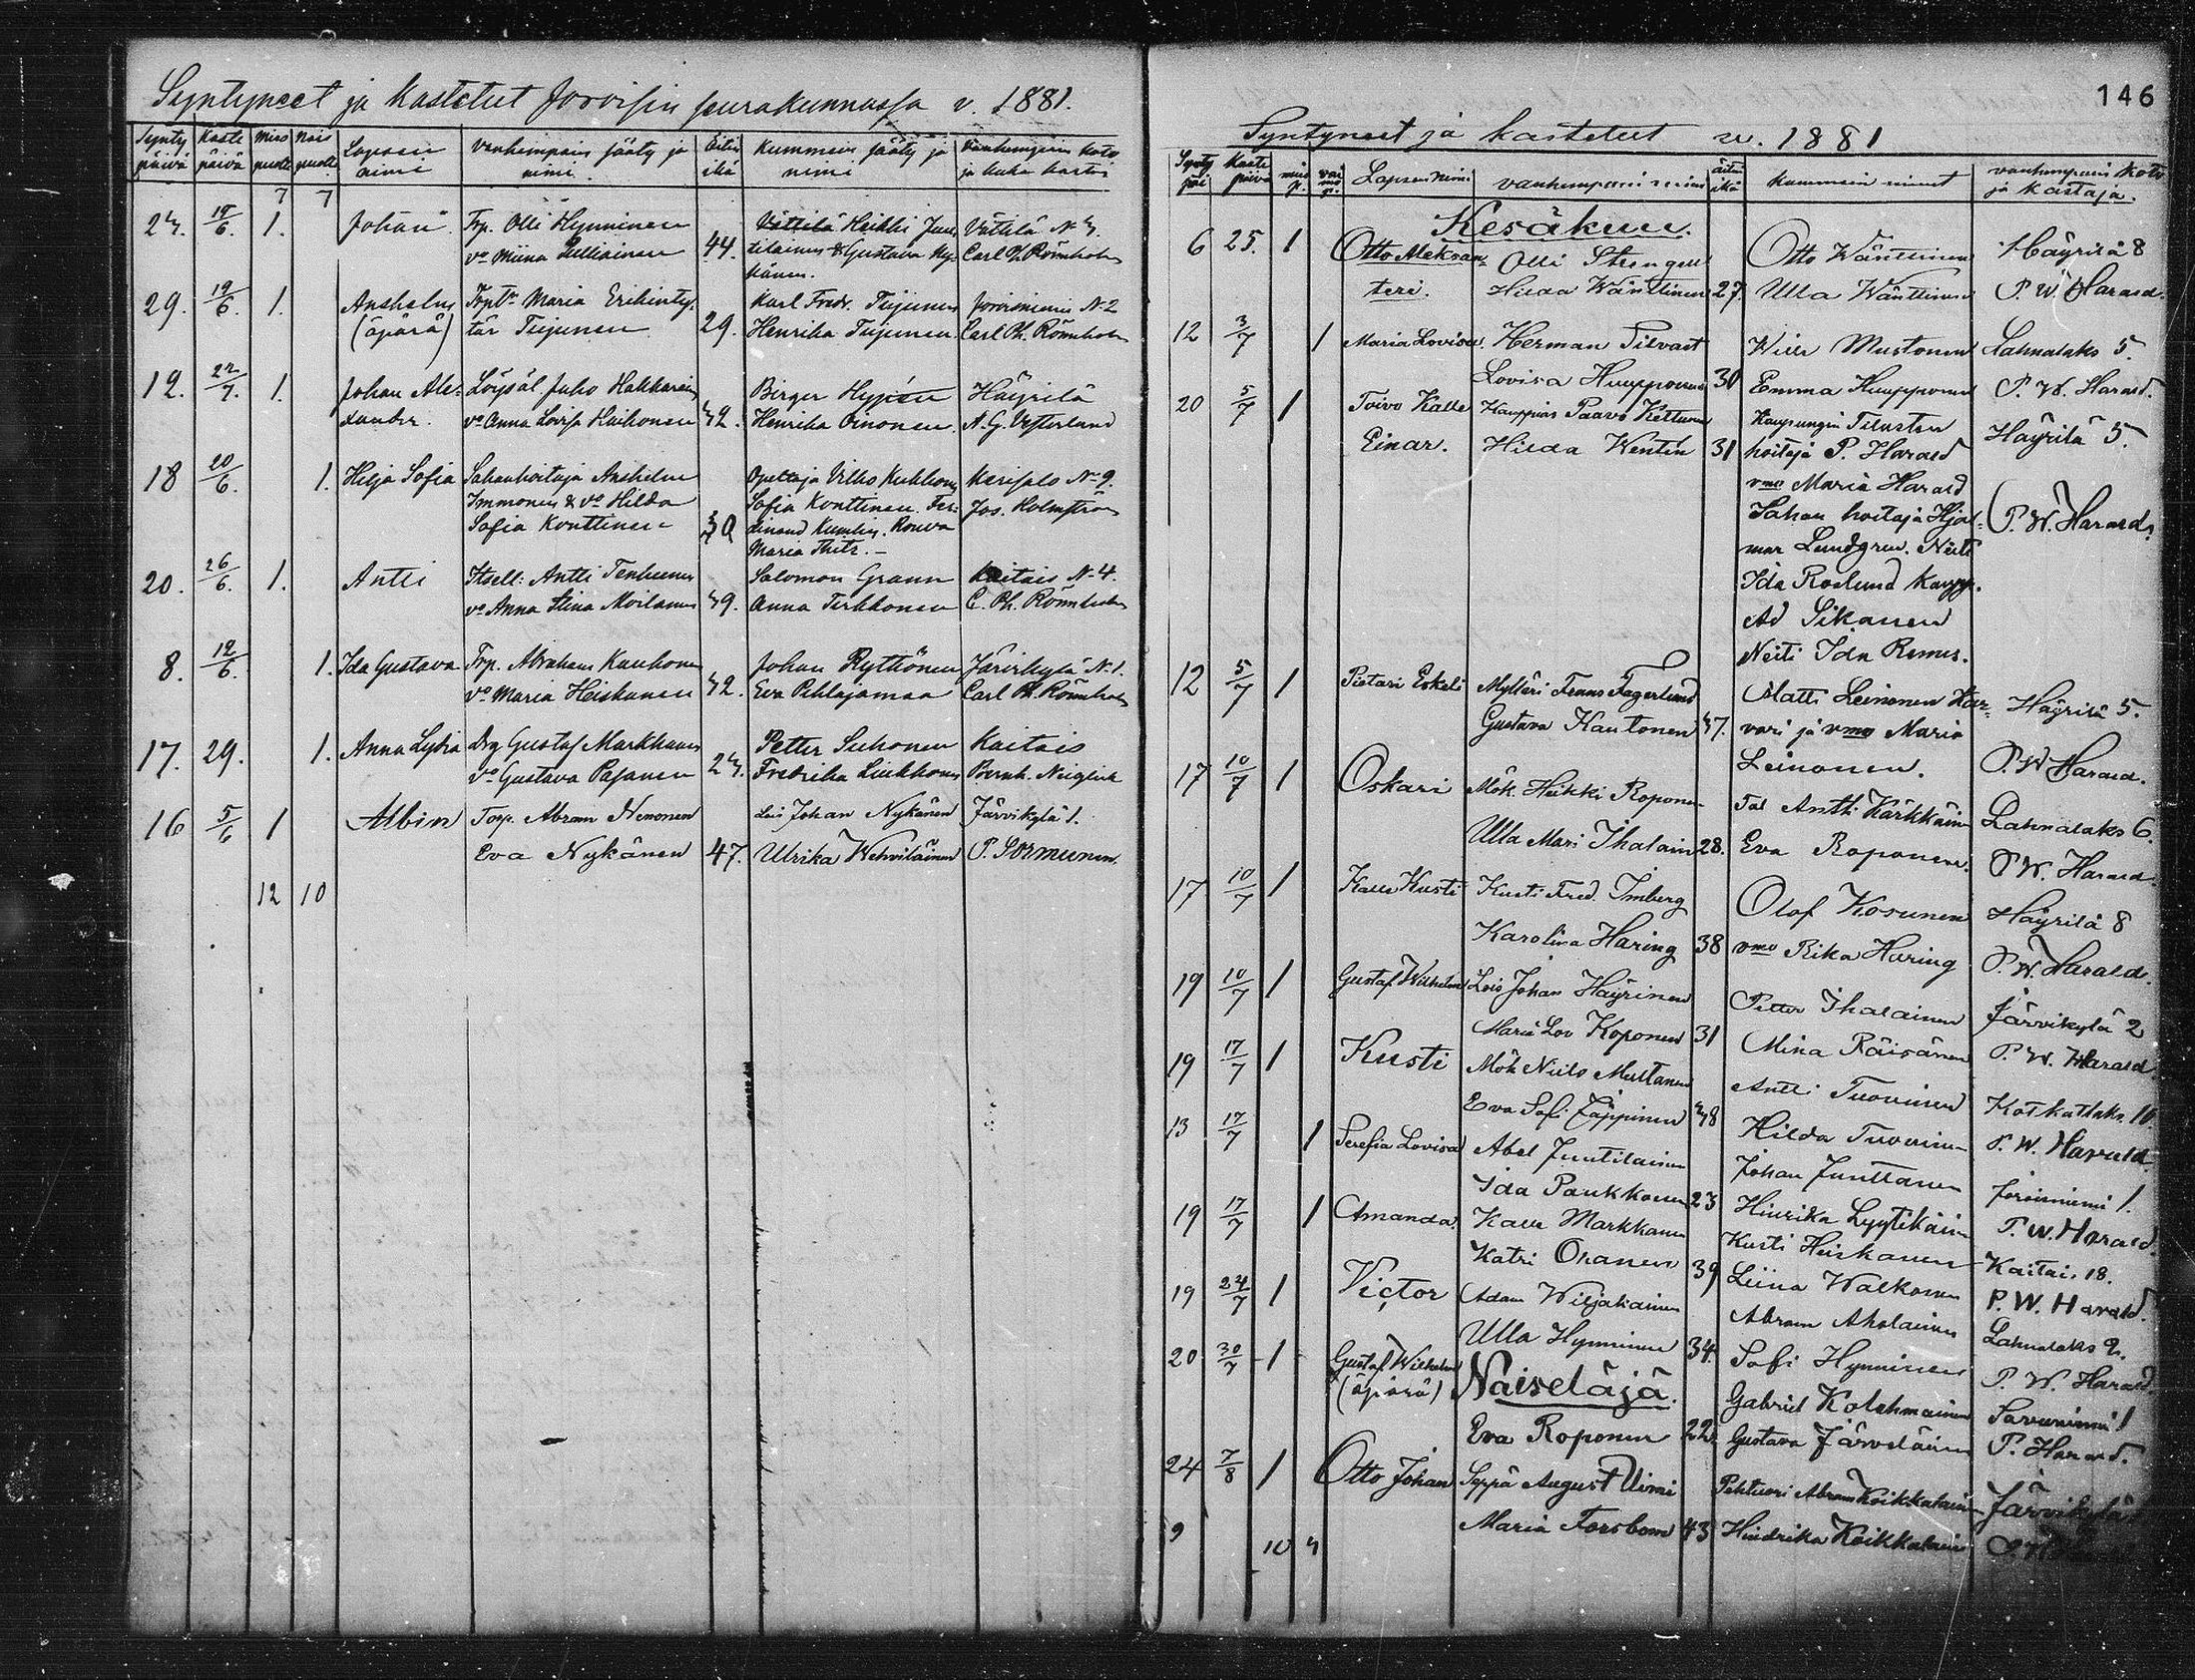 Syntyneet ja kastetut Joroisin seurakunnassa v. 1881.
Synty päivä Kaste päivä Mies puoli Nais puoli Lapsen nimi Vanhempain sääty ja nimi Äitin ikä Kummien sääty ja nimi Vanhempien koto ja kuka kastoi
7 7
19/6. 1. Johan Trp. Olli Hynninen 44. Vättilä Heikki Juu-
vo Miina Pulliainen tilainen & Gustava Ny-
känen.
Carl Ph. Rönnholm
29. 19/6. 1. Anshelm Maria Erikinty- Karl Fredr. Tiijunen Joroisniemi No 2
(äpärä) tär Tiijunen 29. Henrika Tiijunen. Carl Ph. Rönnholm
19. 22/7. 1. Johan Ale- Löysäl Juho Hakkarain Birger Häyrilä
xander. vo Anna Lovisa 42. Henrika Oinonen. A. G. Vesterlund
18 20/6. 1. Hilja Sofia Sahanhoitaja Anshelm Opettaja Vilho
Immonen & vo Hilda Sofia Konttinen. Fer- Jos. Holmström
Sofia Konttinen 30 dinand Kumlin. Rouva
Maria
20. 26/6. 1. Antti Itsell: Antti Tenhunen Salomon Grann Kaitais No 4.
vo Anna Stina Moilanen 49. Anna Tirkkonen C. Ph. Rönnholm
8. 12/6. 1. Ida Gustava Trp. Abraham Kauhonen Johan Rythönen Järvikylä No 1.
vo Maria Heiskanen 42. Eva Pihlajamaa Carl Ph. Rönnholm
17. 29. 1. Anna Lydia Drg Gustaf Markkanen Petter Suhonen Kaitais
vo Gustava Pasanen 24. Fredrika Liukkonen Bernh. Neiglick
16 5/6 1 Albin Torp. Abram Nenonen Lois Johan Nykänen Järvikylä 1.
Eva Nykänen 47. Ulrika Wehviläinen P. Sormunen.
12 10
146
Syntyneet ja kastetut w. 1881
Synty päi Kaste päivä mies p. vai mo p. Lapsen nimi vanhempani nimi äitin ikä kummein nimet vanhempain koto ja kastaja.
Kesäkuu.
6 25. 1 Otto Aleksan- Olli Stengell Otto Wänttinen Häyrilä 8
teri. Hilda Wänttinen 27. Ulla Wänttinen P. W. Harald.
12 3/7 1 Maria Lovisa. Herman Silvast Wille Mustonen Lahnalaks 5.
Lovisa Huupponen 30 Emma Huupponen P. W. Harald.
20 5/7 1 Toivo Kalle Kauppias Paavo Kettunen Kaupungin Tilusten Häyrilä 5.
Einar. Hilda Wentin 31 hoitaja P. Harald
vmo Maria Harald
Sahan hoitaja Hjal- P. W. Harald.
mar Lundgren. Neiti
Ida Roslund Kaupp.
Ad Sikanen
Neiti Ida Remes.
12 5/7 1 Pietari Eskeli Mylläri Frans Fagerlund Matti Leinonen Har- Häyrilä 5.
Gustava Kautonen 47. vari ja vmo Maria
Leinonen. P. W Harald.
17 10/7 1 Oskari Mök. Heikki Roponen Tal Antti Kärkkäin Lahnalaks 6
Ulla Mari Ihalain 28. Eva Roponen. P. W. Harald
17 10/7 1 Kalle Kusti Kusti Fred. Imberg Olof Kosunen Häyrilä 8
Karolina Haring 38 vmo Rika Haring P. W. Harald.
19 10/7 1 Gustaf Wilhelm Lois Johan Häyrinen Petter Ihalainen Järvikylä 2
Maria Lov Koponen 31 Mina Räisänen P. W. Harald
19 17/7 1 Kusti Mök Niilo Multanen Antti Tuovinen Kotkatlaks. 16
Eva Sofi Jäppinen 48 Hilda Tuovinen P. W. Harald.
13 17/7 1 Serefia Lovisa Abel Juutilainen Johan Junttanen Joroisniemi 1.
Ida Paukkonen 23 Hinrika Lyytikäin P. W. Harald.
19 17/7 1 Amanda. Kalle Markkanen Kusti Heiskanen Kaitais 18.
Katri Oranen 39 Liina Walkonen P. W. Harald.
19 24/7 1 Victor Adam Wiljakainen Abram Aholainen Lahnalaks 2.
Ulla Hynninen 34. Sofi Hynninen P. W. Harald.
20 30/7 1 Gustaf Wilhelm Naiseläjä. Gabriel Kolehmainen Savuniemi 1
(äpärä) Eva Roponen 22. Gustava Järveläinen P. Harald.
24 7/8 1 Otto Johan Seppä August Uimi Pehtuori Abram Koikkalain Järvikylä
Maria Forsbom 43 Hindrika Koikkalainen
9 10 4